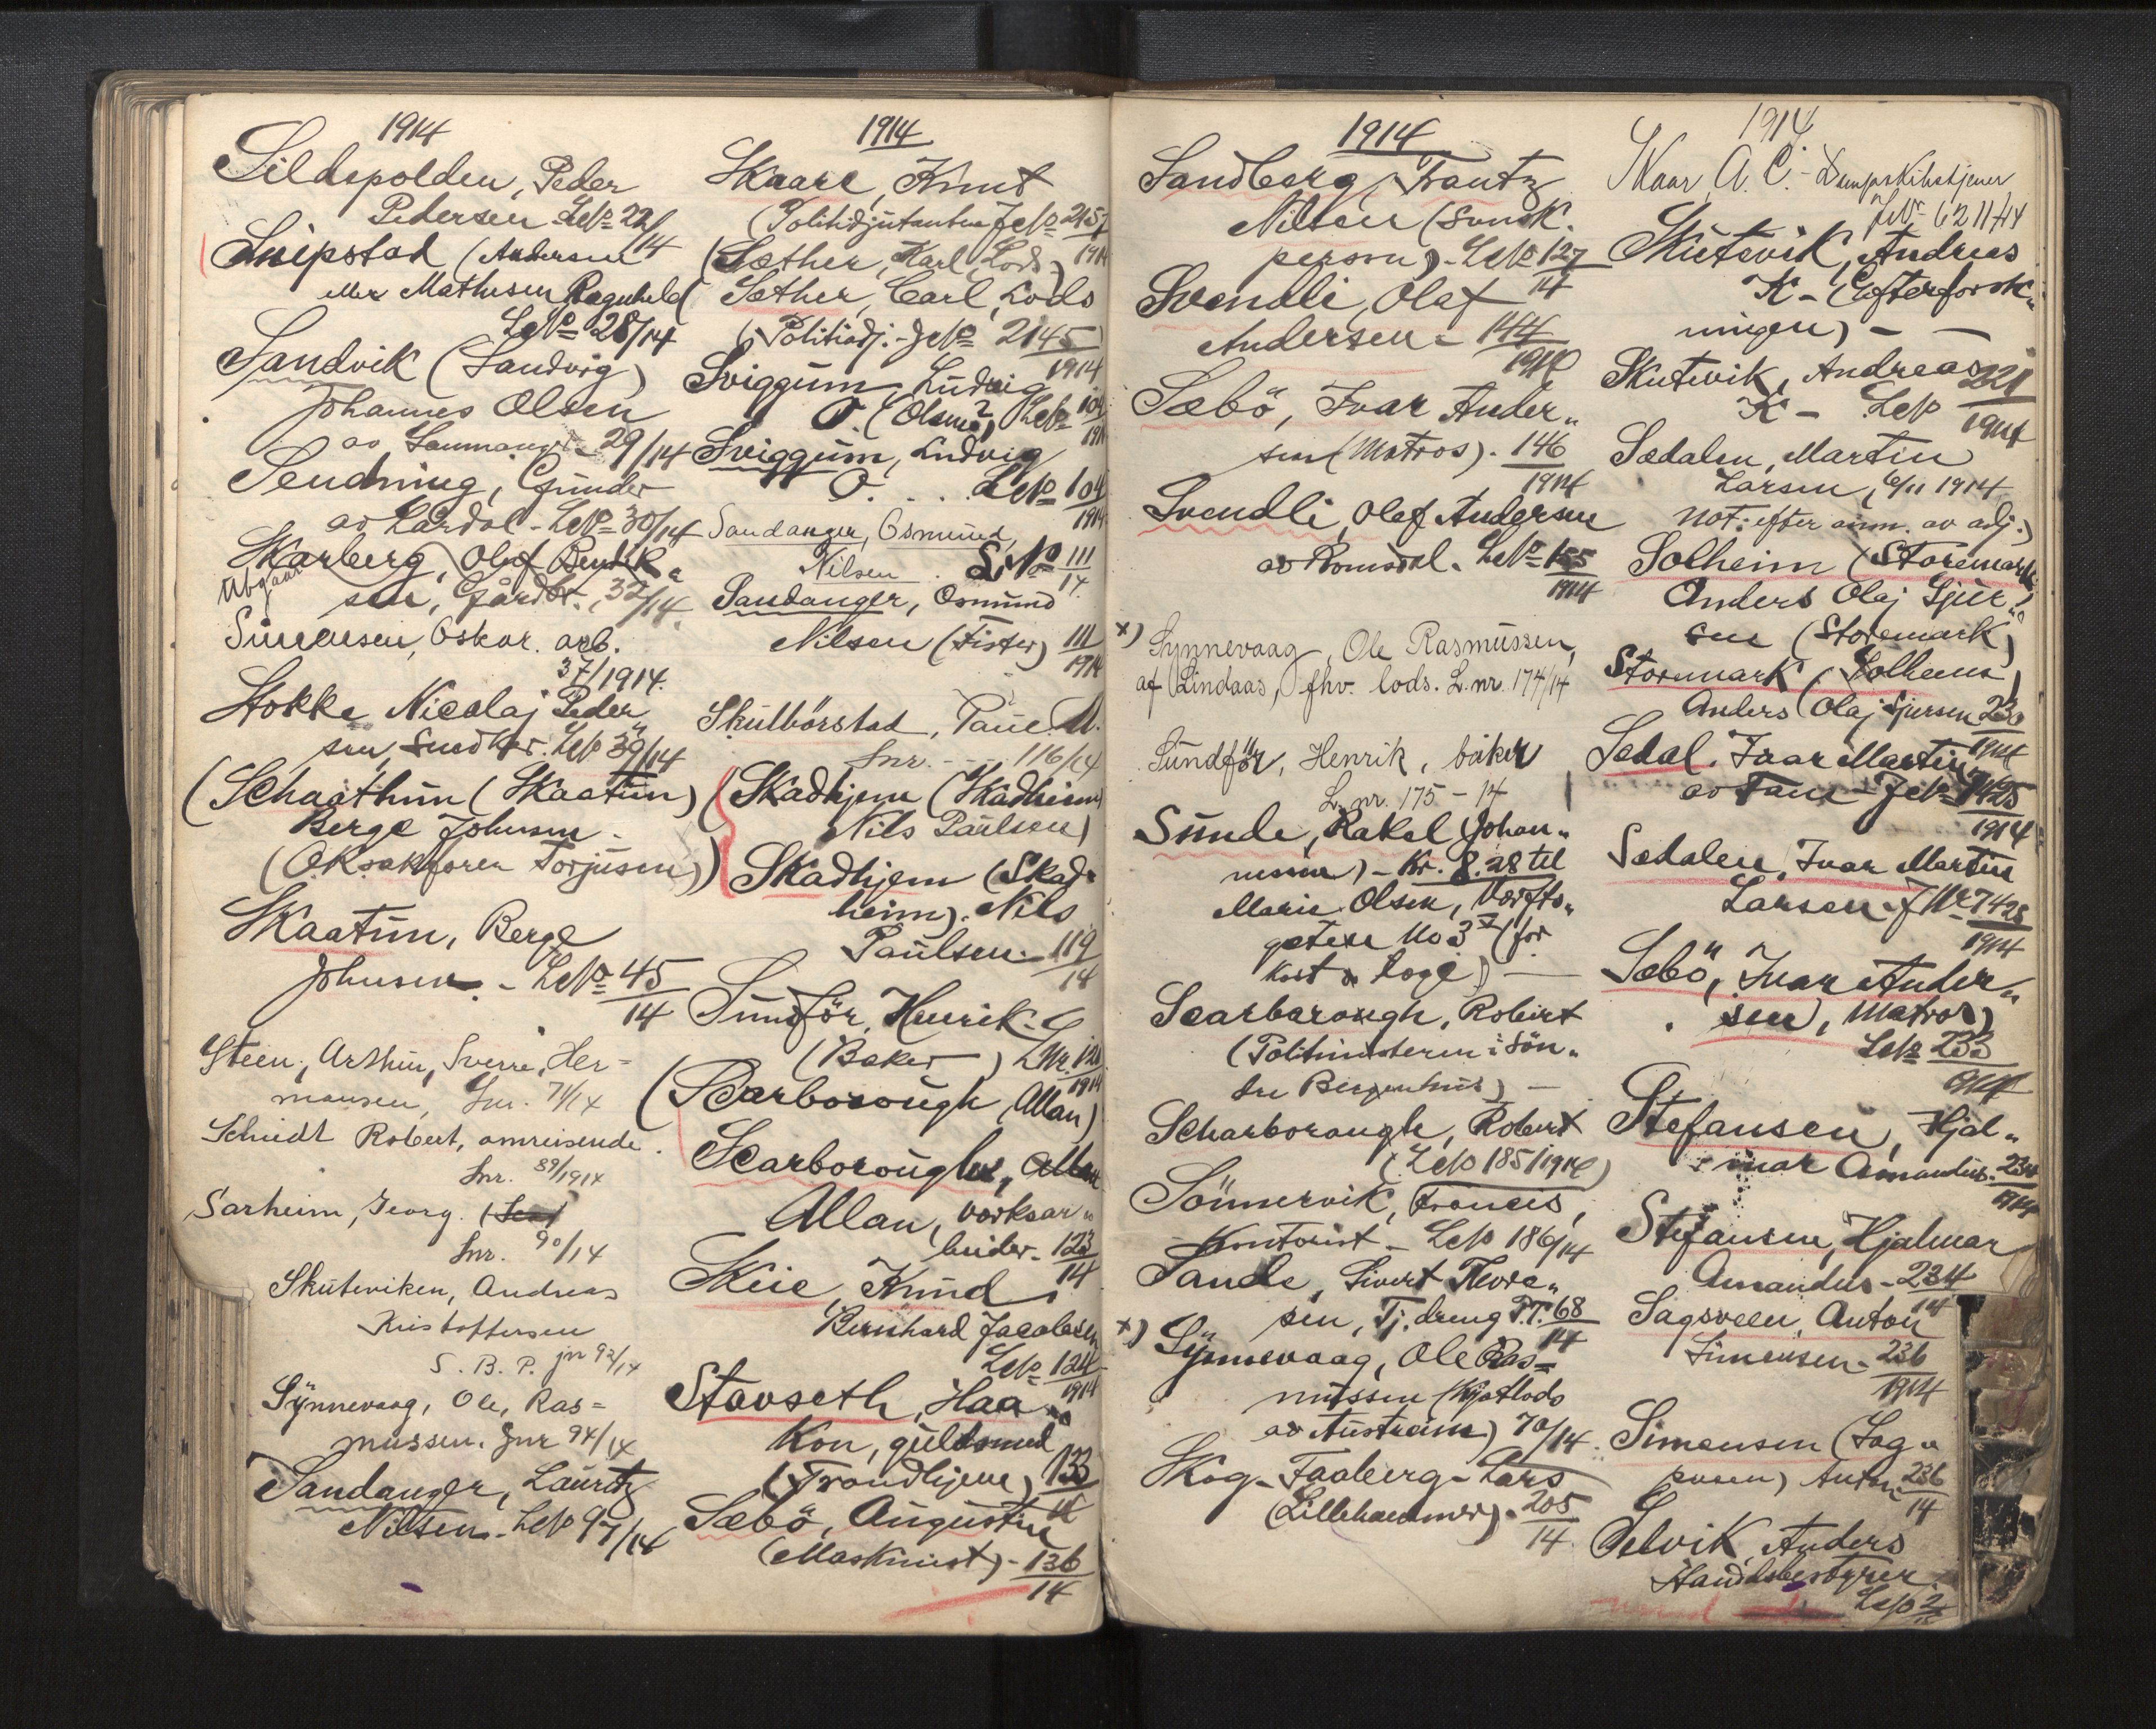 1914
Sildspolden, Peder
Pedersen LNo 22/14
Snipstad (Andersen
eller Mathisen Ragnhild
LNo 28/14
Sandvik (Sandvig)
Johannes Olsen
av 29/14
Sendning, Gunder
av Lardal - LNo 30/14
Skarberg, Olaf Bendik
Afgaar
sen, Gårdbr. 32/14
Simonsen, Oskar. arb.
37/1914.
Stokke Nicolaj Peder
sen, Snedker. LNo 39/14
(Schaathun (Skaatun)
Berge Johnsen
(O.R.sakfører Torjusen)
Skaatun, Berge
Johnsen. - LNo 45
14
Steen, Arthur, Sverre, Her=
mansen, Lnr. 71/14
Schmidt Robert, omreisende.
Lnr. 89/1914
Sarheim, Georg.
Lnr. 90/14
Skuteviken, Andreas
Kristoffersen
S. B. P. jnr 92/14
Synnevaag, Ole, Ras=
mussen. Jnr 94/14
Sandanger, Lauritz
Nilsen - LNo 97/14
1914
Skaare, Knut
(Politiadjutanten JNo 2157
1914
(Sæther, Karl, Lods)
Sæther, Carl, Lods
(Politiadj. - JNo 2145)
1914
Sviggum, Ludvig
O. (Olsen?) LNo 104
1914
Sviggum, Ludvig
O. . . . LNo 104
1914
Sandanger, Osmund,
Nilsen . LNo 111
14.
Sandanger, Osmund
Nilsen (Fister) 111
1914
Skulbörstad, Paul M.
Lnr. - - 116/14
(Skadhjem (Skadheim)
Nils Paulsen)
Skadhjem (Skad-
heim). Nils
Paulsen - 119
14
Sundför, Henrik.
(Baker) LNr. 120
1914
(Scarborough, Allan)
Scarborough,
Allan, værksar„
beider - 123
14
Skeie, Knud
Bernhard Jacobsen
LNo 124
1914
Stavseth, Haa„
kon, guldsmed
(Trondhjem) 133
14
Sæbö, Augustin
(Maskinist) - 136
14
1914
Sandberg, Frantz
Nilsen (svensk.
person) - LNo 127
14
Svendli, Olaf
Andersen - 144
1914
Sæbö, Ivar Ander„
sen (Matros). 146
1914
Svendli, Olaf Andersen
av Romsdal. LNo 155
1914
x) Synnevaag, Ole Rasmussen,
af Lindaas, fhv. lods. L.nr. 174/14
Sundför, Henrik, baker
L.nr. 175 - 14
Sunde, Rakel (Johan„
nesen) - Kr. 8.28 til
Marie Olsen, Værfts„
gaten No 3 (for
Kost & Loge) -
Scarborough, Robert
(Politimesteren i Sön„
dre Bergenhus) -
Scharborough, Robert
(LNo 185/1914)
Sönnervik, Frances,
Kontorist - LNo 186/14
Sande, Sivert Thore„
sen, Tj.dreng P.T. 68
14
x) Synnevaag, Ole Ras=
mussen (Kjætlods
av Austreim) 70/14.
Skog - Faaberg - Lars
(Lillehammer). 205
14.
1914
Skaar, A. C. - Dampskibstjener
JNr 6211/14
Skutevik, Andreas
K - (Efterforsk„
ningen) - -
Skutevik, Andreas 221
K - LNo 1914
Sædalen, Martin
Larsen, 6/11 1914
Not: efter anm. av adj.)
Solheim (Storemark
Anders Olaj Sjur„
sen (Storemark)
Storemark (Solheim)
Anders Olaj Sjursen 230
1914
Sædal. Ivar Martin
av Fane - JNo 7425
1914
Sædalen, Ivar Martin
Larsen - JNr 7425
1914
Sæbö, Ivar Ander„
sen, Matros)
LNo 233
1914
Stefansen, Hjal„
mar Amandus. 234
1914
Stefansen, Hjalmar
Amandus - 234
14
Sagsveen, Anton
Simensen - 236
1914
Simensen (Sag„
Anton 236
14
Selvik, Anders
Handelsbestyrer